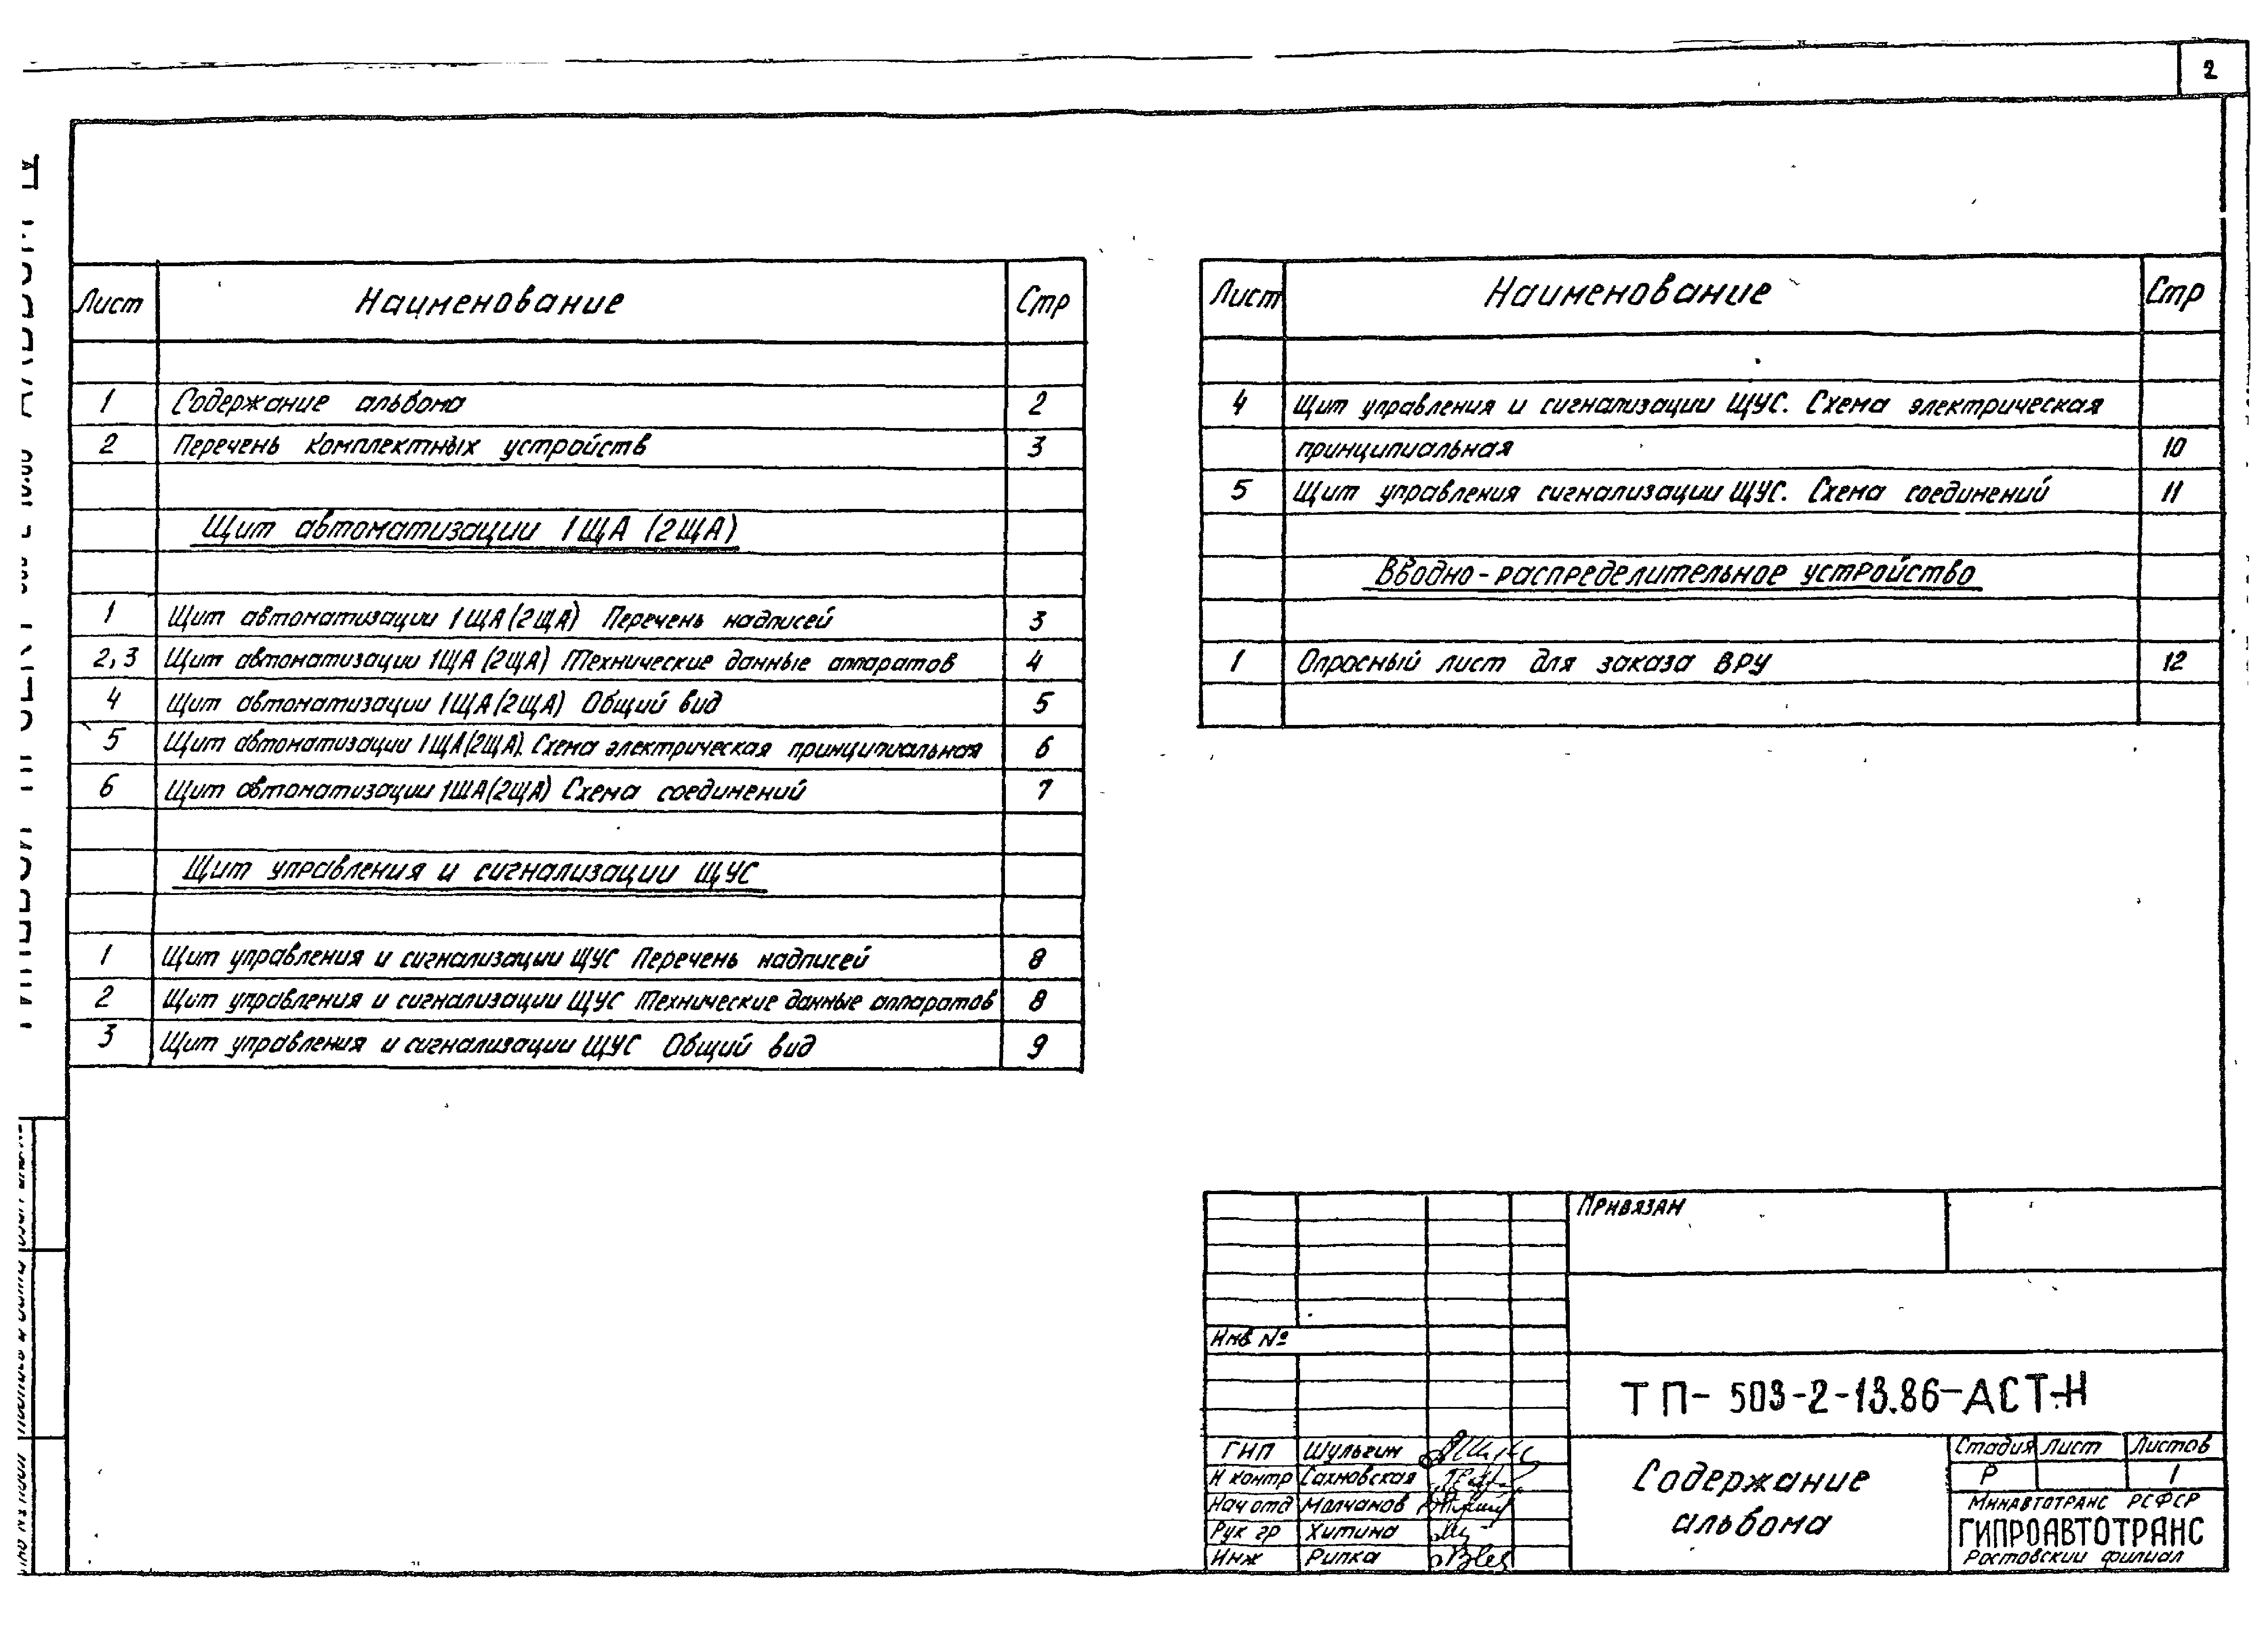 2
Лист Наименование Стр
1 Содержание альбома 2
2 Перечень комплектных устройств 3
Щит автоматизации 1ЩА (2ЩА)
1 Щит автоматизации 1ЩА (2ЩА) Перечень надписей 3
2,3 Щит автоматизации 1ЩА (2ЩА) Технические данные аппаратов 4
4 Щит автоматизации 1ЩА (2ЩА) Общий вид 5
5 Щит автоматизации 1ЩА (2ЩА). Схема электрическая принципиальная 6
6 Щит автоматизации 1ЩА (2ЩА) Схема соединений 7
Щит управления и сигнализации ЩУС
1 Щит управления и сигнализации ЩУС Перечень надписей 8
2 Щит управления и сигнализации ЩУС Технические данные аппаратов 8
3 Щит управления и сигнализации ЩУС Общий вид 9
Лист Наименование Стр
4 Щит управления и сигнализации ЩУС. Схема электрическая
принципиальная 10
5 Щит управления сигнализации ЩУС. Схема соединений 11
Вводно-распределительное устройство
1 Опросный лист для заказа ВРУ 12
Привязан
Инв №
ТП-503-2-13.86-АСТ-Н
ГИП Шульгин
Н контр Сахновская
Нач отд Молчанов
Рук гр Хитина
Инж Рипка
Содержание
альбома
Стадия Лист Листов
Р 1
Минавтотранс РСФСР
ГИПРОАВТОТРАНС
Ростовский филиал